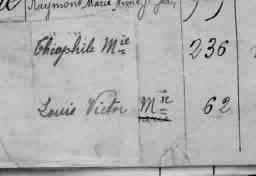 Raymond Marie
Théophile Mie 236
Louis Victor Mie 62